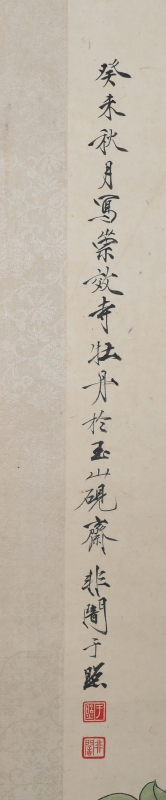 癸未秋月寫崇效寺牡丹於玉山硯齋非闇于照
于照
非闇